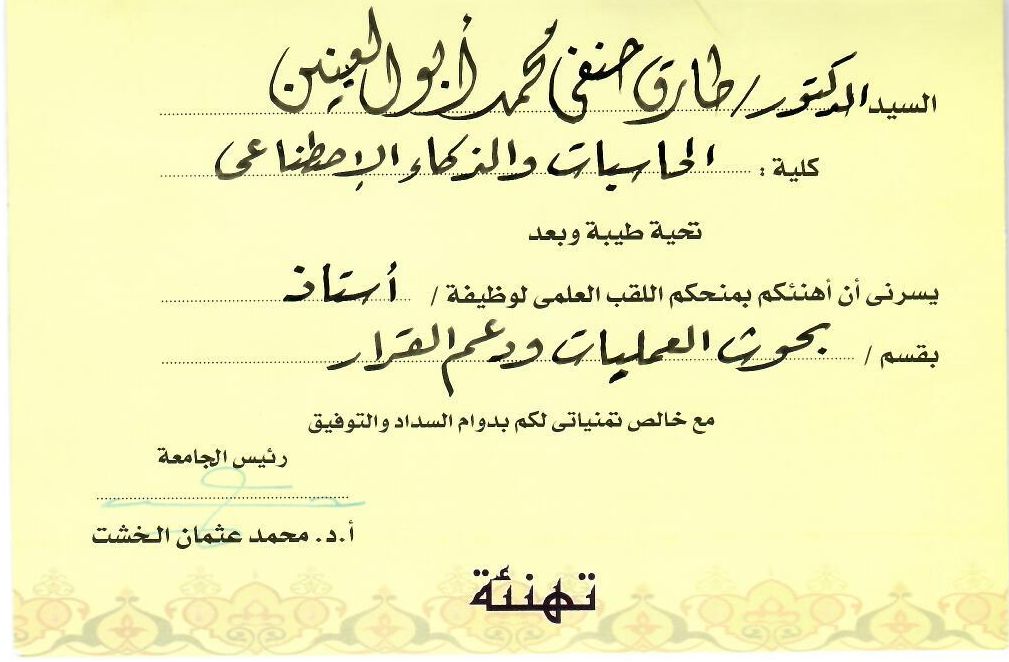 السيد الدكتور / طارق حنفى محمد أبو العينين
كلية : الحاسبات والذكاء الإصطناعى
تحية طيبة وبعد
يسرنى أن أهنئكم بمنحكم اللقب العلمى لوظيفة / أستاذ
بقسم / بحوث العمليات ودعم القرار
مع خالص تمنياتى لكم بدوام السداد والتوفيق
رئيس الجامعة
أ.د. محمد عثمان الخشت
تهنئة